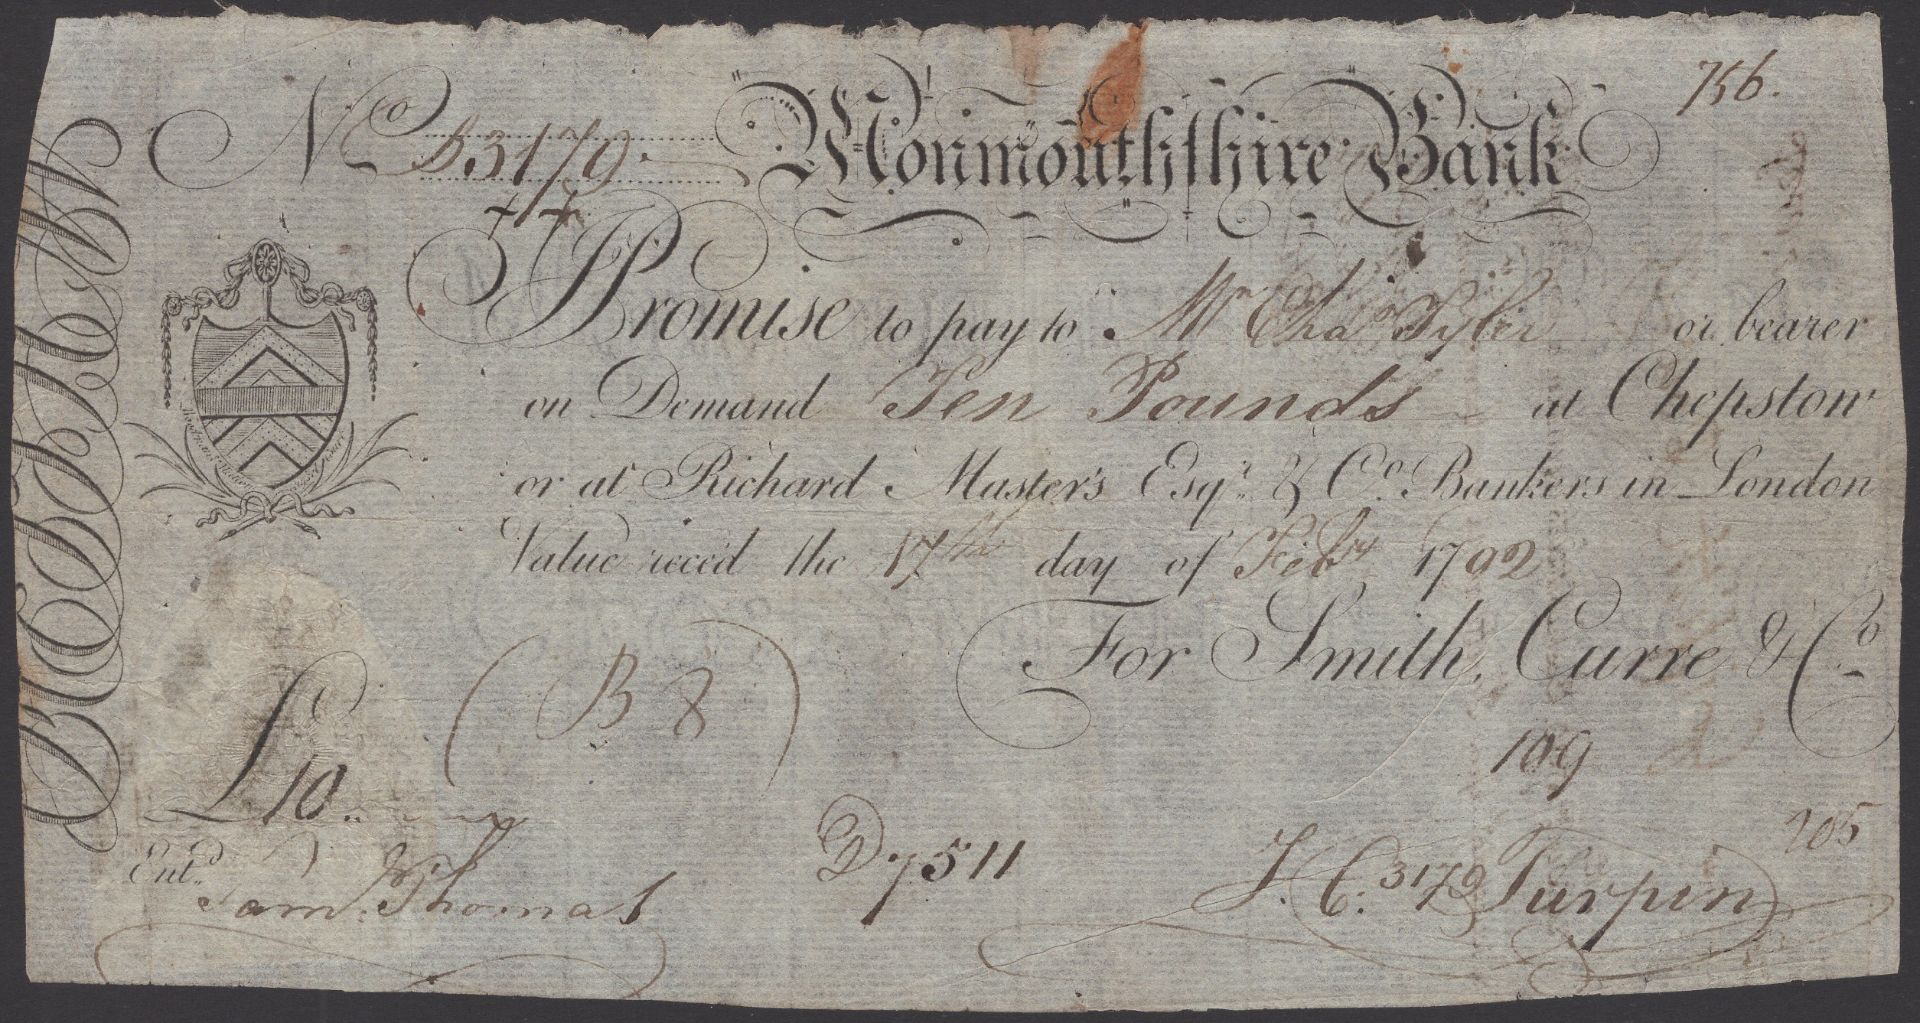 756.
No B3179. Monmouthſhire Bank
I Promise to pay to Mr Chas Tyler or bearer
on Demand Ten Pounds at Chepstow
or at Richard Masters Esqr. & Co. Bankers in London
Value recèd the 17th day of Febry 1792
For Smith, Curre & Co.
(B 8)
109
£10
205
Entd. Sam. Thomas
D 7511
J. C. Turpin
3179